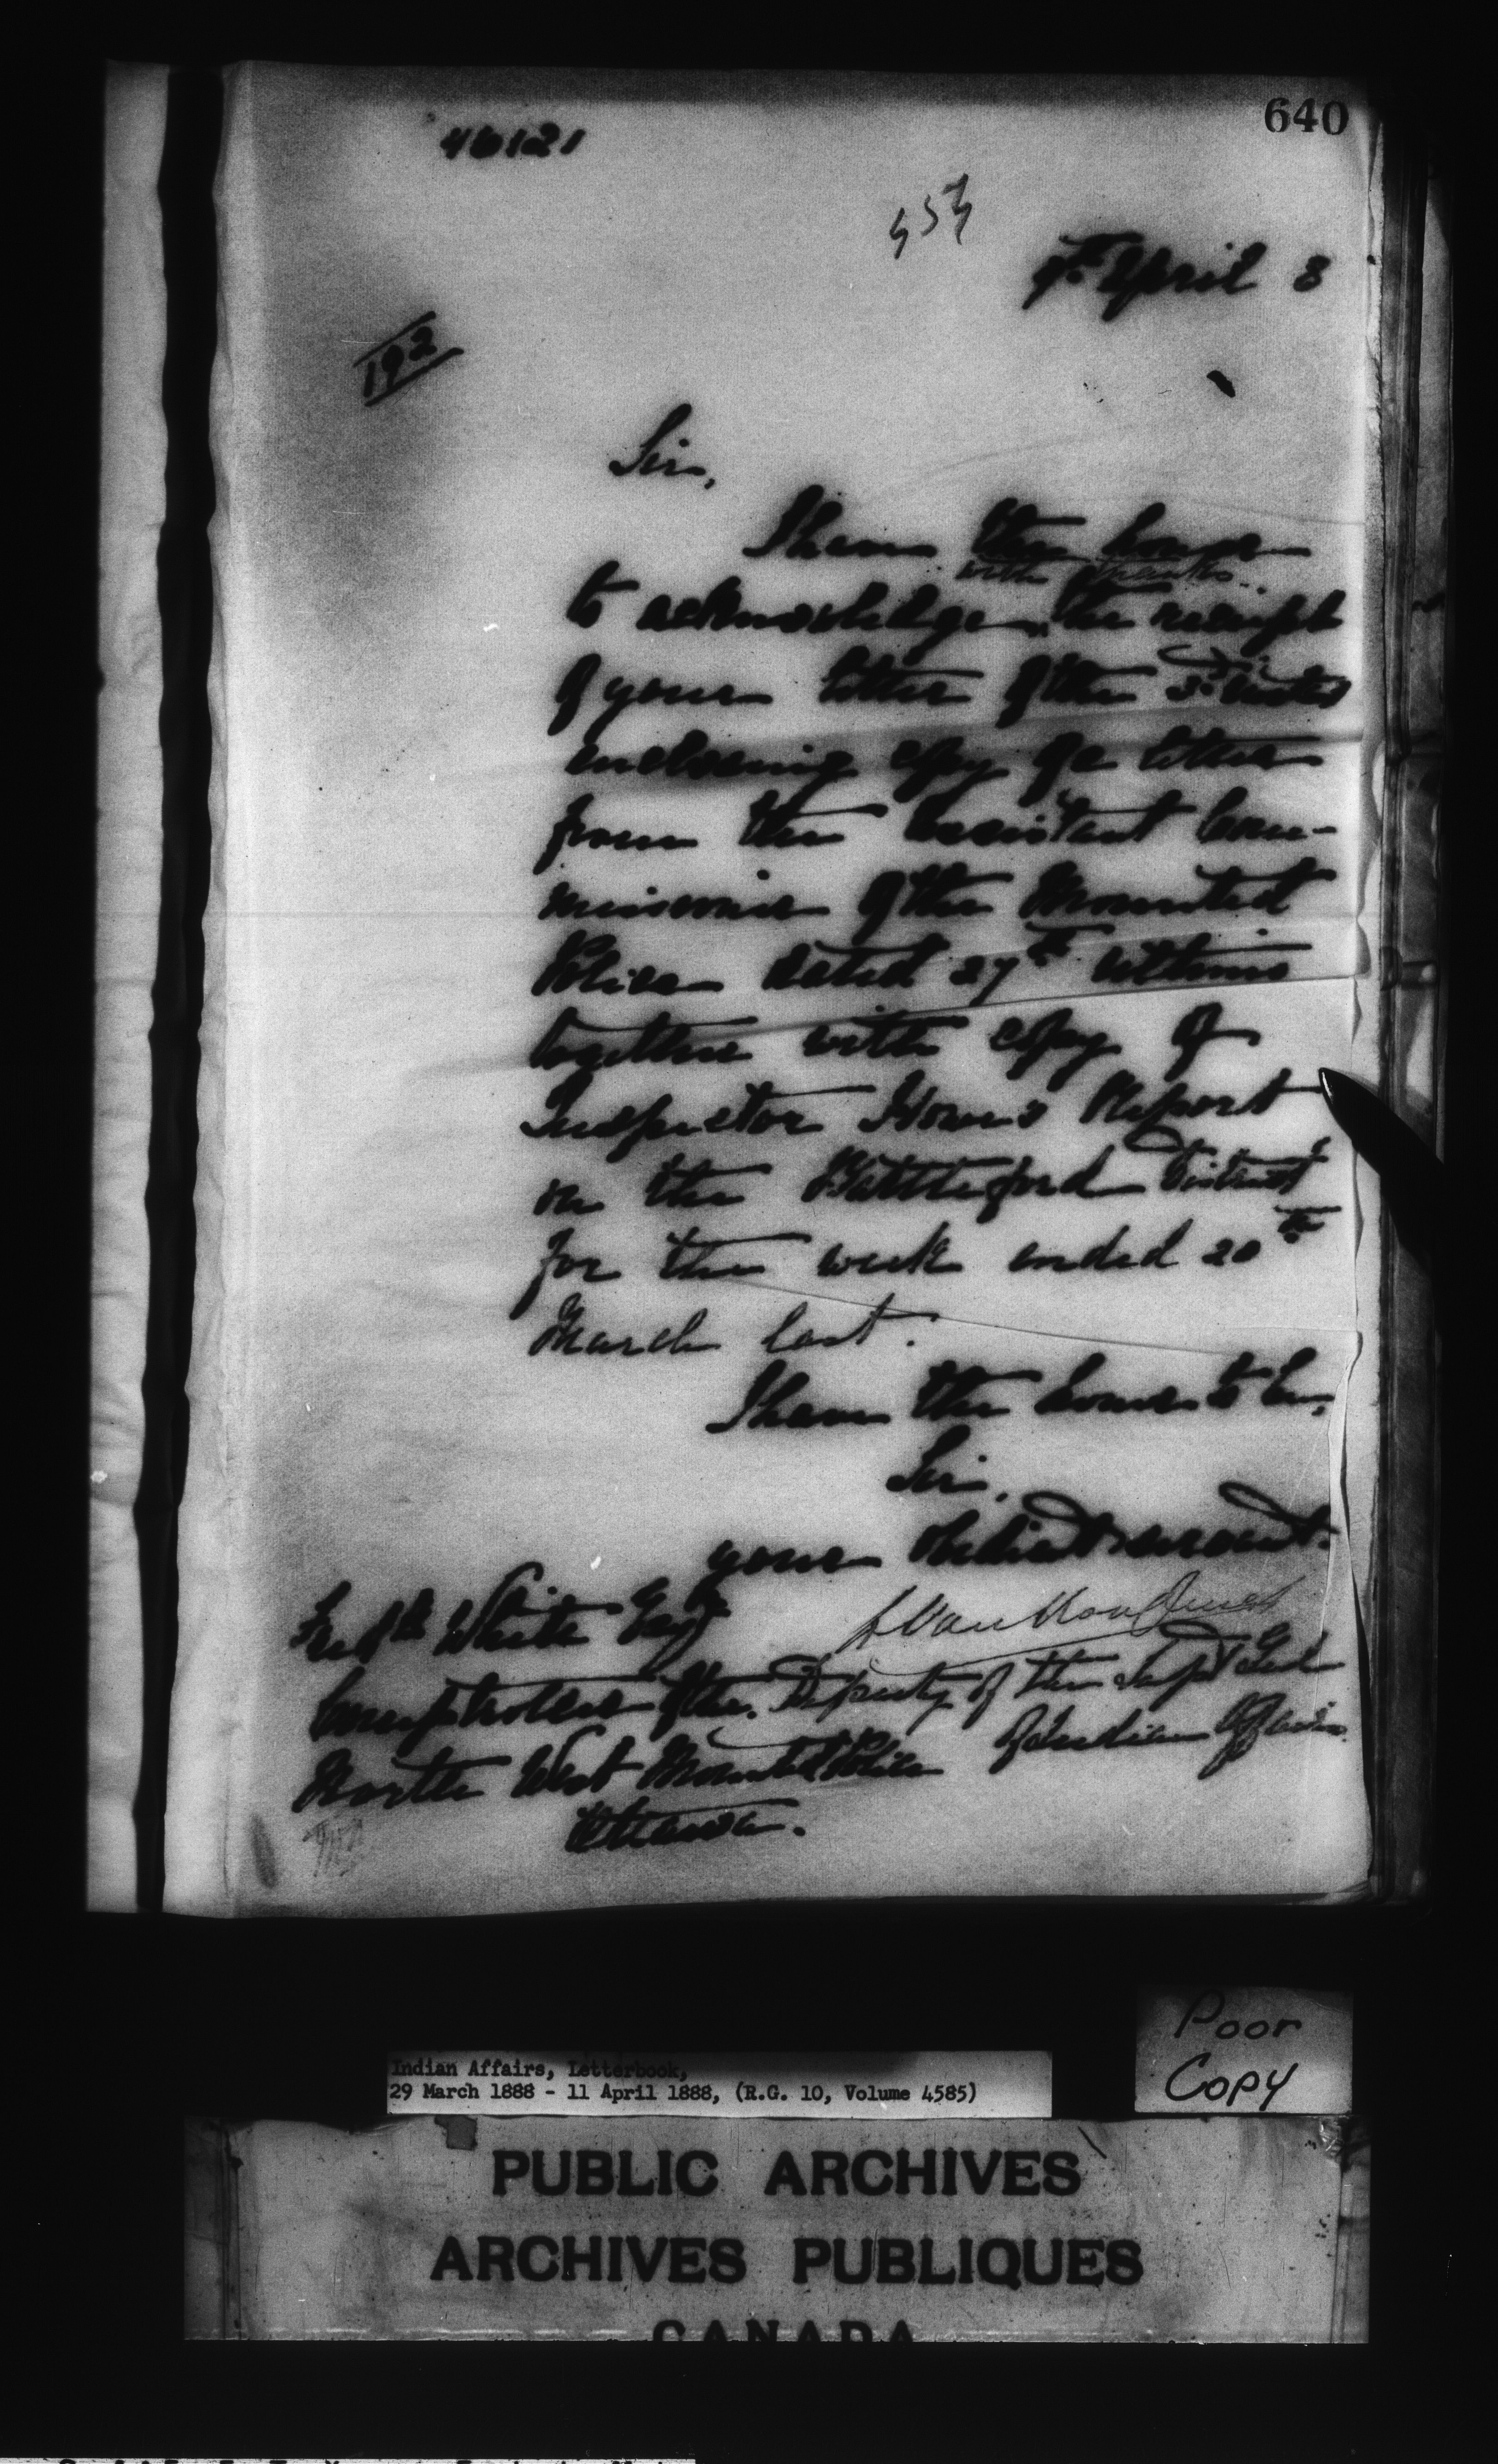 640
46121
April 8
192
Sir,
I have the honor
with thanks
to acknowledge the receipt
of your letter of the
enclosing copy of a letter
from the Assistant Com-
missioner of the Mounted
Police dated 27th ultimo
together with copy of
Inspector Howe's Report
on the Battleford District
for the week ended 20th
March last.
I have the honor to be,
Sir,
your obedient servant.
L VanKoughnet
Fredk White Esq
Deputy of the Supt Genl
Comptroller of the
of Indian Affairs
North West Mounted Police
Ottawa.
Poor
Copy
Indian Affairs, Letterbook,
29 March 1888 - 11 April 1888, (R.G. 10, Volume 4585)
PUBLIC ARCHIVES
ARCHIVES PUBLIQUES
CANADA